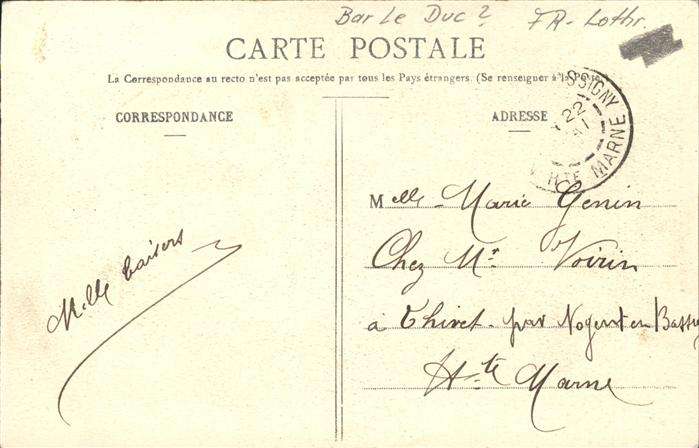 Bar Le Duc? FR-Lothr.
CARTE POSTALE
La Correspondance au recto n'est pas acceptée par tous les Pays étrangers. (Se renseigner à la Poste
CORRESPONDANCE
ADRESSE
SSIGNY
22
Hte MARNE
Melle Marie Genin
Chez Mr Voirin
à Thivet par Nogent en Bassigny
Hte Marne
Mille baisers